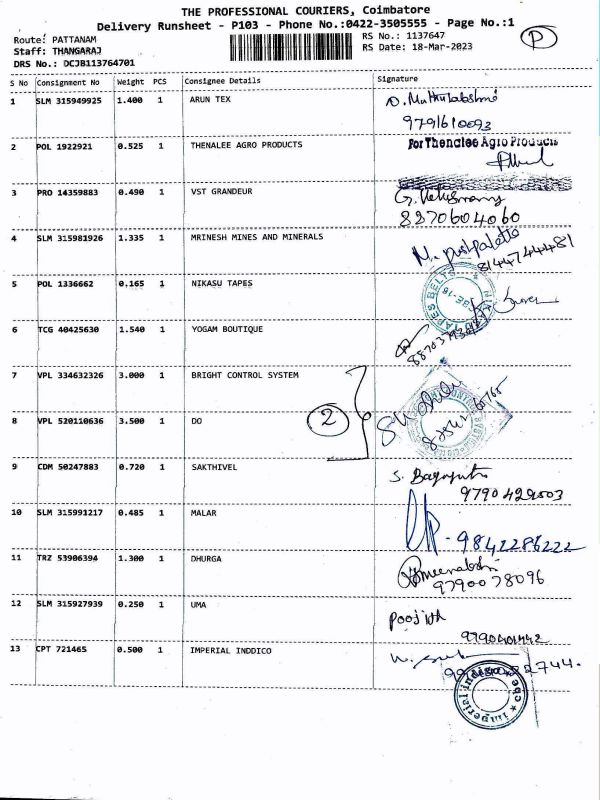 THE PROFESSIONAL COURIERS, Coimbatore
Delivery Runsheet - P103 - Phone No.:0422-3505555 - Page No.:1
Route: PATTANAM
RS No.: 1137647
P
Staff: THANGARAJ
RS Date: 18-Mar-2023
DRS No.: DCJB113764701
S No Consignment No Weight PCS Consignee Details Signature
1 SLM 315949925 1.400 1 ARUN TEX D. Muthulakshmi
9791610093
2 POL 1922921 0.525 1 THENALEE AGRO PRODUCTS For Thenalee Agro Products
3 PRO 14359883 0.490 1 VST GRANDEUR
8870604060
4 SLM 315981926 1.335 1 MRINESH MINES AND MINERALS
8144744481
5 POL 1336662 0.165 1 NIKASU TAPES
6 TCG 40425630 1.540 1 YOGAM BOUTIQUE
7 VPL 334632326 3.000 1 BRIGHT CONTROL SYSTEM
2
8 VPL 520110636 3.500 1 DO
9 CDM 50247883 0.720 1 SAKTHIVEL
9790429003
10 SLM 315991217 0.485 1 MALAR
9842286222
11 TRZ 53906394 1.300 1 DHURGA Meenakshi
9790078096
12 SLM 315927939 0.250 1 UMA Poojith
13 CPT 721465 0.500 1 IMPERIAL INDDICO